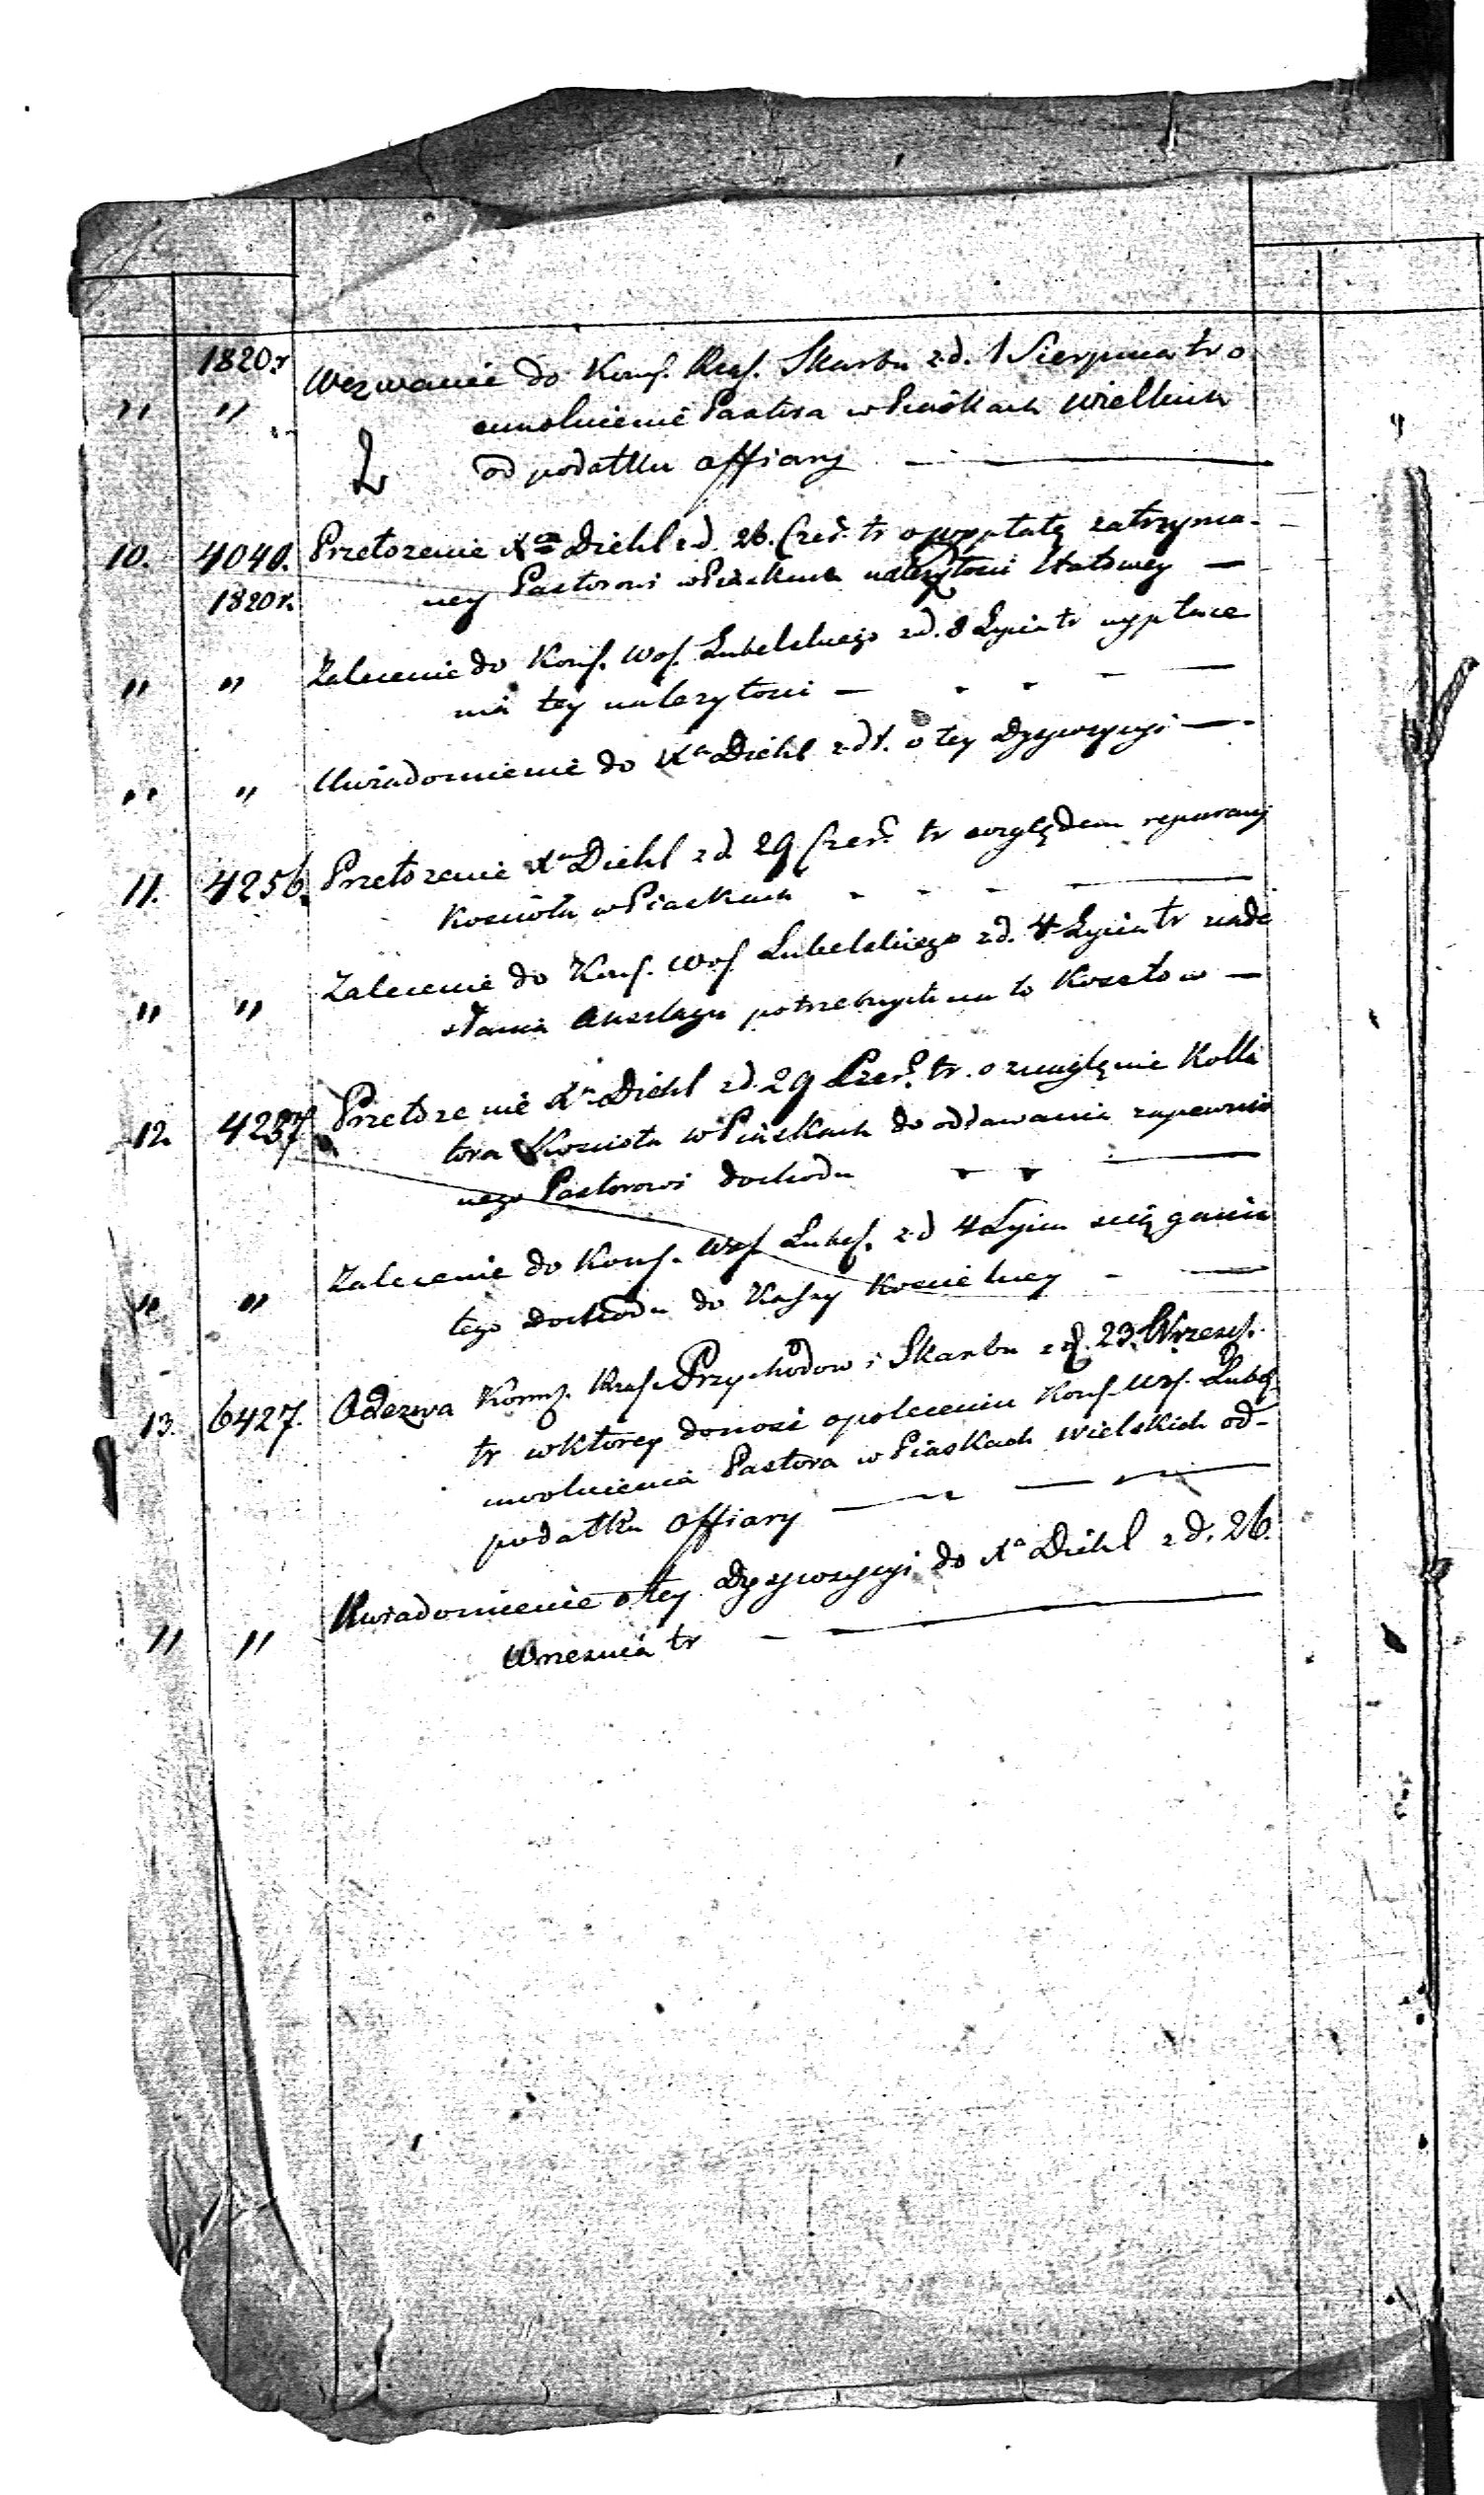 1820 r
" " Wezwanie do Komſ. Rząſ. Skarbu z d. 1 Sierpnia tr o
uwolnienie Pastora w Piaskach Wielkich
od podatku offiary —
10. 4040. Przełozenie Xa Diehl z d. 26. Czer. tr o wypłatę zatrzyma-
1820 r. ney Pastorowi w Piaskach należytości Etatowey —
" " Zalecenie do Komſ. Woſ. Lubelskiego z d. 8 Lipca tr wypłace
nia tey należytości —
" " Uwiadomienie do Xa Diehl z d t. o tey dyspozycyi —
11. 4256. Przełozenie Xa Diehl z d. 29 Czer. tr względem reperacyi
Kościoła w Piaskach —
" " Zalecenie do Komſ. Woſ. Lubelskiego z d. 4 Lipca tr nade
słania Anszlagu potrzebnych na to Kosztow —
12. 4257. Przełozenie Xa Diehl z d. 29 Czer. tr. o znaglenie Kolla
tora Kościoła w Piaskach do oddawania zapewnio
nego Pastorowi dochodu —
" " Zalecenie do Komſ. Woſ. Lubeſ. z d 4 Lipca ściągania
tego dochodu do Kassy Kościelney —
13. 6427. Odezwa Komſ. Rząſ. Przychodow i Skarbu z d. 23. Wrześ.
tr w ktorey donosi o poleceniu Komſ. Woſ. Lubeſ.
uwolnienia Pastora w Piaskach Wielskich od-
podatku offiary —
" " Uwiadomienie o tey dyspozycyi do Xa Diehl z d. 26.
Września tr —